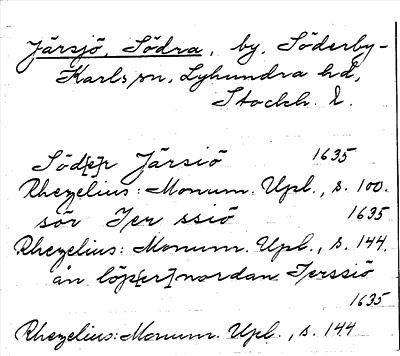 Järsjö, Södra, by, Söderby-
Karls sn, Lyhundra hd,
Stockh. l.
Söd[e]r Järsiö 1635
Rhezelius: Monum. Upl., s. 100.
sör Jer ssiö 1635
Rhezelius: Monum. Upl., s. 144.
ån löp[er] nordan Jerssiö
1635
Rhezelius: Monum. Upl., s. 144